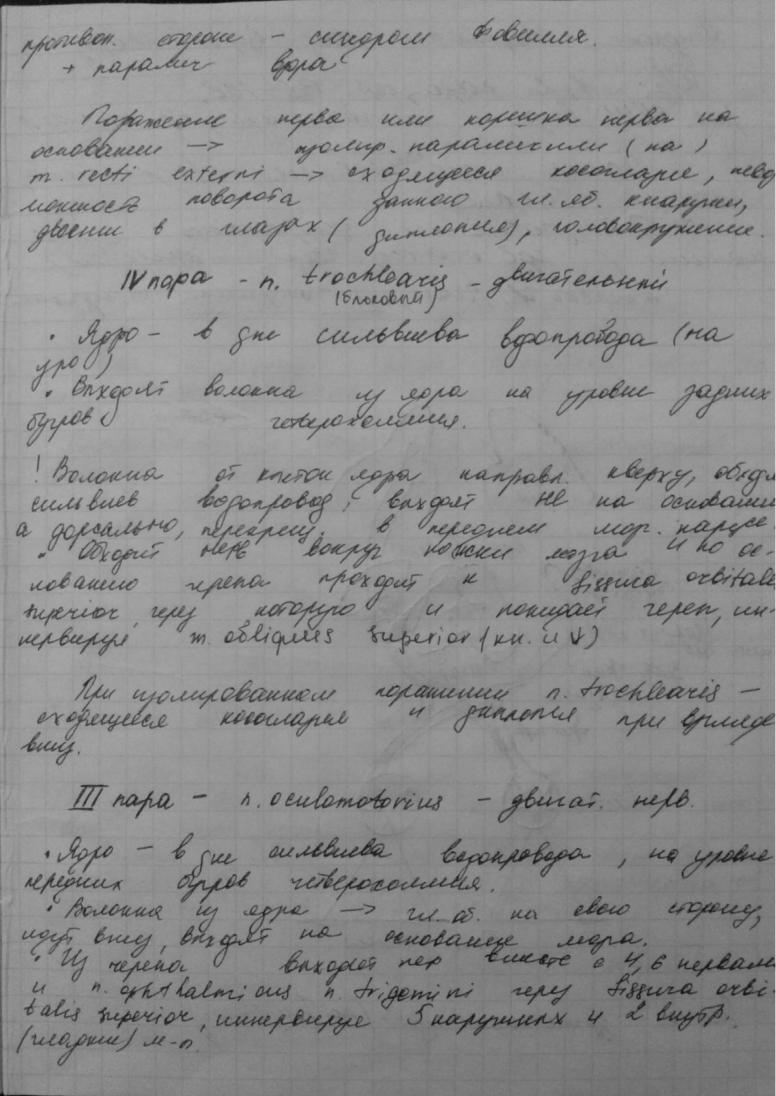 противоп. стороне - синдром Фовилля.
+ паралич взора
Поражение нерва или корешка нерва на
основании → изолир. паралич или (на)
m. recti externi → сходящееся косоглазие, невоз
можность поворота данного гл. яб. кнаружи,
двоение в глазах (диплопия), головокружение.
IV пара - n. trochlearis - двигательный
(блоковый)
• Ядро - в дне сильвиева водопровода (на
уро)
• Выходят волокна из ядра на уровне задних
бугров четверохолмия.
! Волокна от клеток ядра направл. кверху, обходя
сильвиев водопровод; выходят не на основании
а дорсально, перекрещ. в переднем мозг. парусе
• Обходит нерв вокруг ножки мозга и по ос-
нованию черепа проходит к fissura orbitale
superior, через которую и покидает череп, ин-
нервируя m. obliquus superior (кн. и ↓)
При изолированном поражении n. trochlearis -
сходящееся косоглазие и диплопия при взгляде
вниз.
III пара - n. oculomotorius - двигат. нерв.
• Ядро - в дне сильвиева водопровода, на уровне
передних бугров четверохолмия.
• Волокна из ядра → гл. об. на свою сторону,
идут вниз, выходят на основание мозга.
• Из черепа выходит нер вместе с 4, 6 нервами
и n. ophthalmicus n. trigemini через fissura orbi-
talis superior, иннервируя 5 наружных и 2 внутр.
(гладкие) м-п.